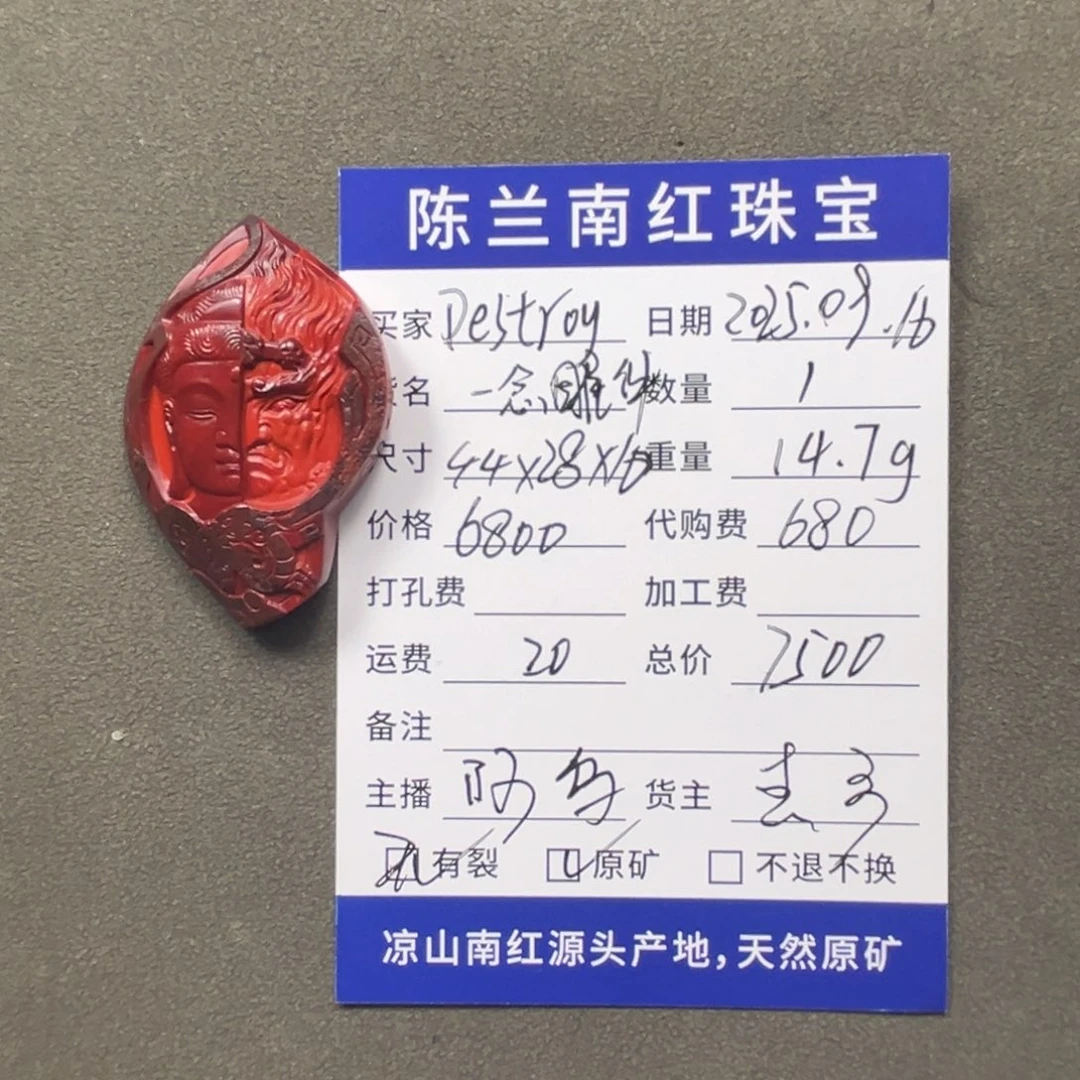 陈兰南红珠宝
买家 Destroy 日期 2025.09.16
货名 一念 数量 1
尺寸 44x28x16 重量 14.7g
价格 6800 代购费 680
打孔费 加工费
运费 20 总价 7500
备注
主播 阿 货主
有裂 原矿 不退不换
凉山南红源头产地,天然原矿